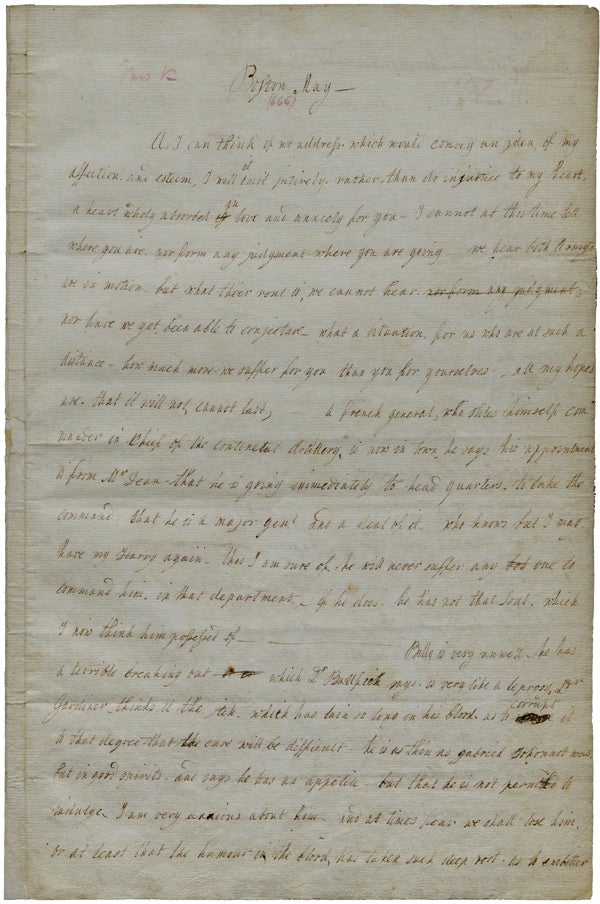 Boston May —
(666)
As I can think of no address which would convey an idea of my
affection and esteem, I will omit it intirely rather than do injustice to my heart,
a heart wholy absorbed in love and anxiety for you — I cannot at this time tell
where you are nor form any judgment where you are going — we hear both Armys
are in motion but what their rout is, we cannot hear nor form any judgment,
nor have we yet been able to conjecture — what a situation, for us who are at such a
distance — how much more we suffer for you than you for yourselves — all my hopes
are that it will not, cannot last, a french general, who stiles himself com
mander in Chief of the continetal Artillery, is now in town, he says his appointment
is from Mr Dean — that he is going immediately to head quarters to take the
command, that he is a major genl and a deal of it. who knows but I may
have my Harry again — this I am sure of, he will never suffer any one to
command him in that department — if he does he has not that Soul, which
I now think him possessed of —
Billy is very unwell — he has
a terrible breaking out which Dr Bullfich says is very like a leprosy, Dr
Gardiner thinks it the itch which has lain so long on his blood as to corrupt it
to that degree that the cure will be difficult — he is as thin as gabriel Johonnot was,
but in good spirits and says he has an appetite — but that he is not permited to
indulge. I am very anxious about him — and at times fear we shall lose him,
or at least that the humour in the blood, has taken such deep root as to embitter